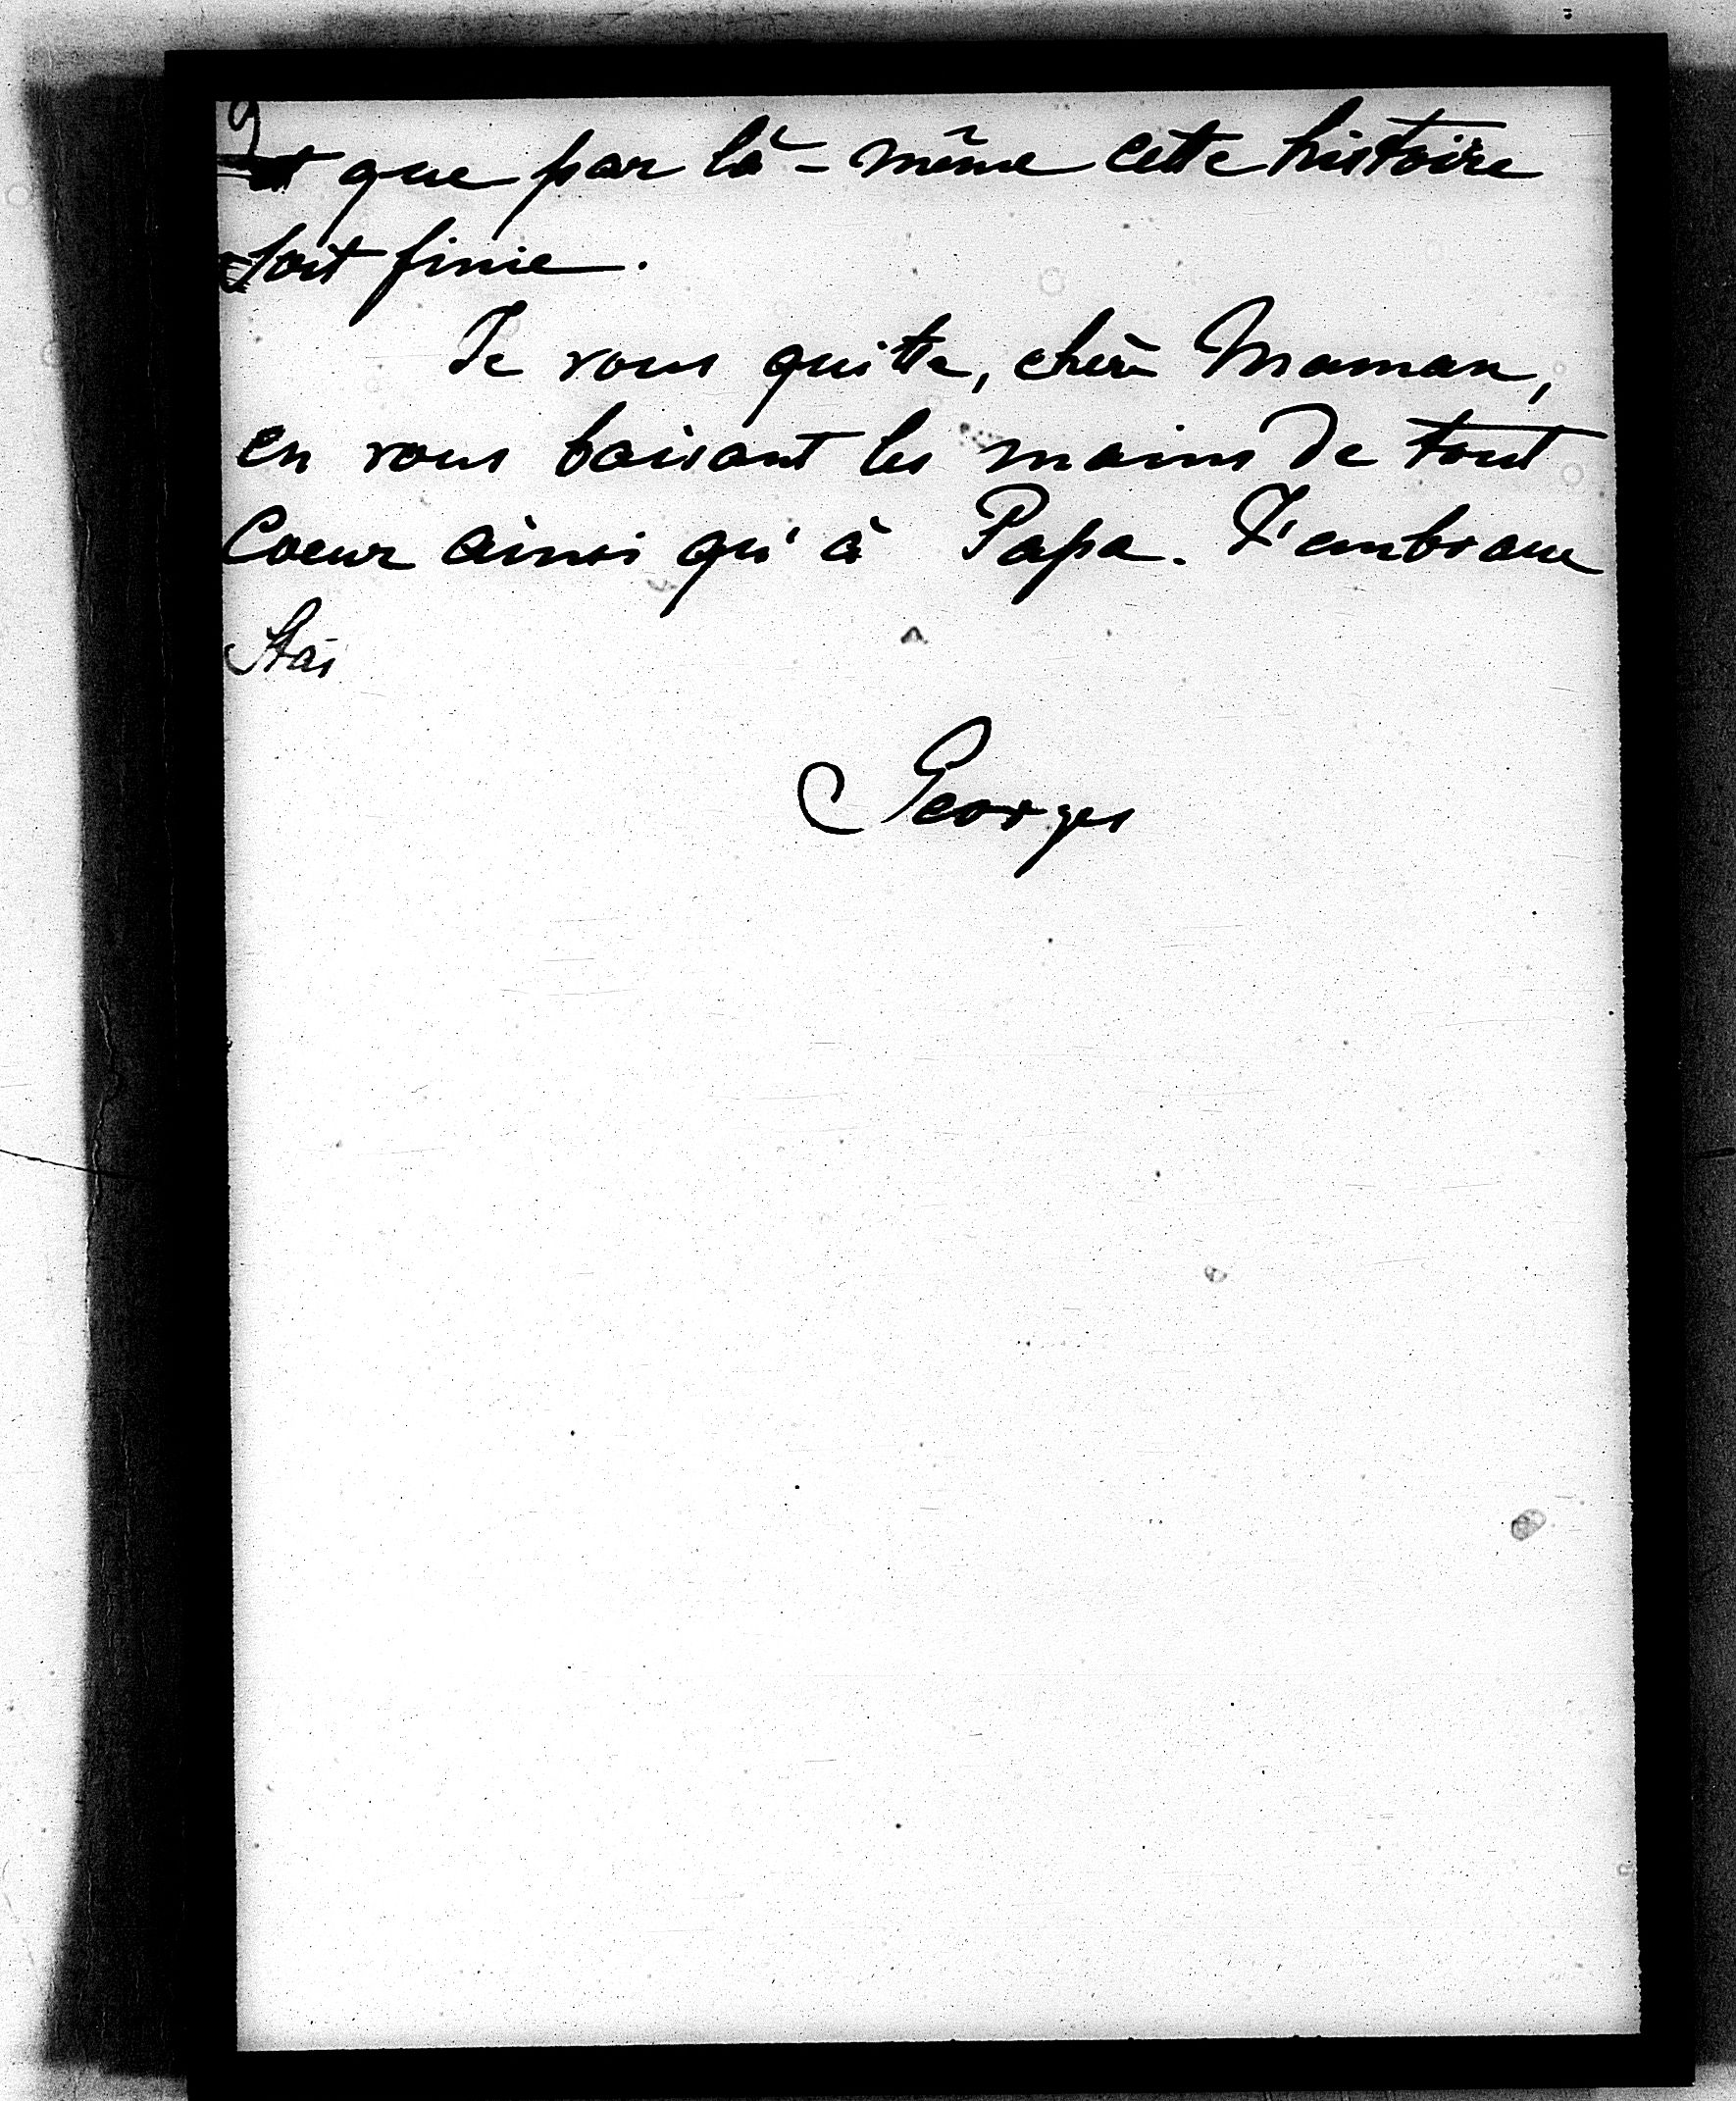 et que par là-même cette histoire
soit finie.
Je vous quitte, chère Maman,
en vous baisant les mains de tout
Coeur ainsi qu'à Papa. J'embrasse
Stas
Georges